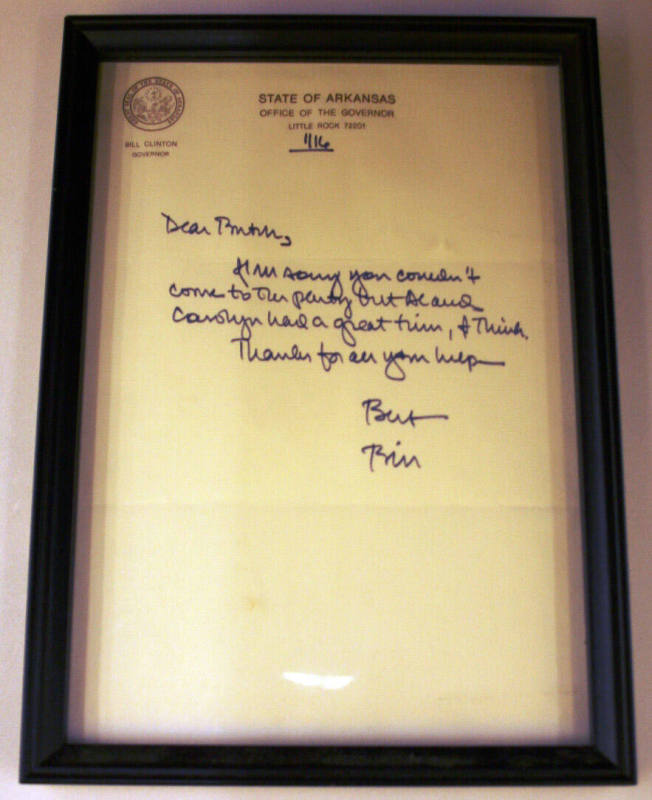 STATE OF ARKANSAS
OFFICE OF THE GOVERNOR
LITTLE ROCK 72201
BILL CLINTON
GOVERNOR
1/16
Dear Butch,
I'm sorry you couldn't
come to the party but Al and
Carolyn had a great time, I think.
Thanks for all your help—
Best
Bill